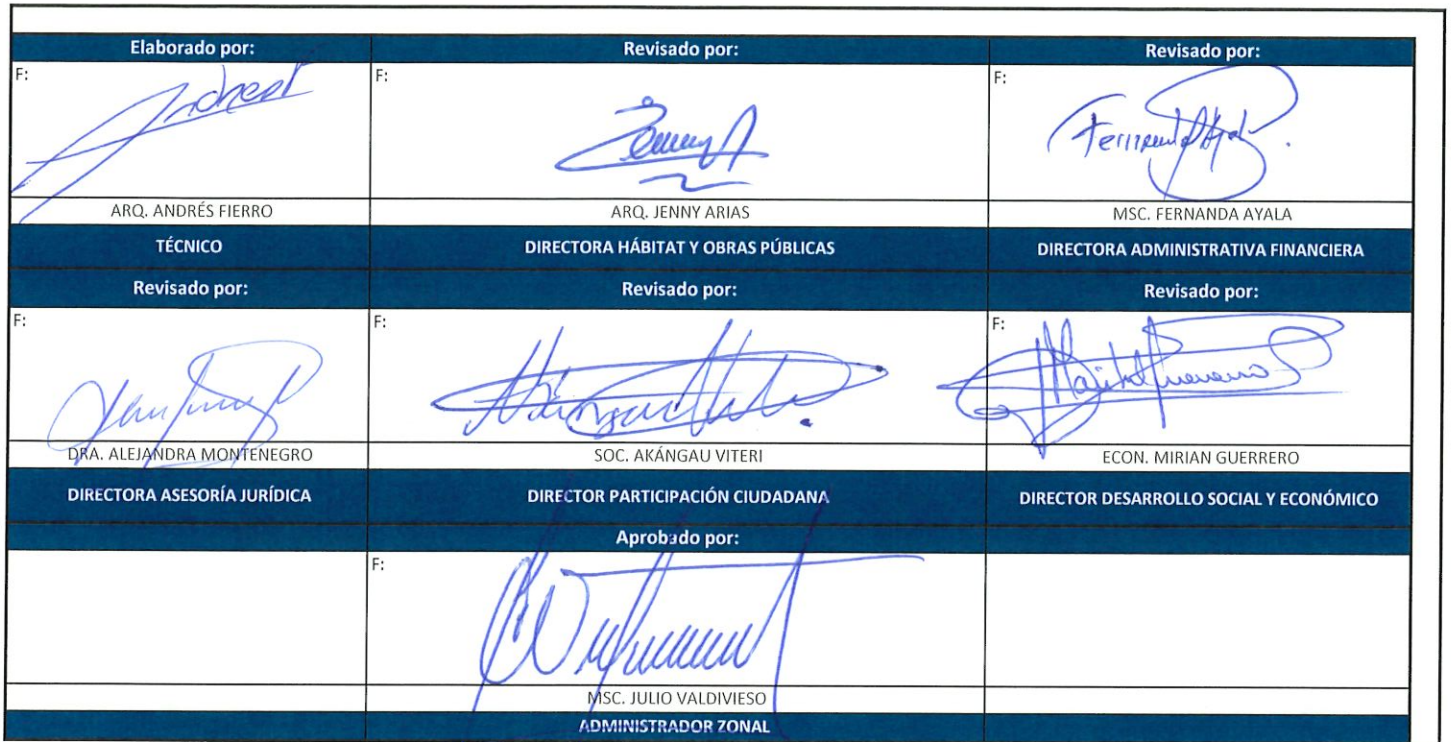 Elaborado por: Revisado por: Revisado por:
F: F: F:
Andres Jenny A Fernanda Ayala
ARQ. ANDRÉS FIERRO ARQ. JENNY ARIAS MSC. FERNANDA AYALA
TÉCNICO DIRECTORA HÁBITAT Y OBRAS PÚBLICAS DIRECTORA ADMINISTRATIVA FINANCIERA
Revisado por: Revisado por: Revisado por:
F: F: F:
DRA. ALEJANDRA MONTENEGRO SOC. AKÁNGAU VITERI ECON. MIRIAN GUERRERO
DIRECTORA ASESORÍA JURÍDICA DIRECTOR PARTICIPACIÓN CIUDADANA DIRECTOR DESARROLLO SOCIAL Y ECONÓMICO
Aprobado por:
F:
MSC. JULIO VALDIVIESO
ADMINISTRADOR ZONAL